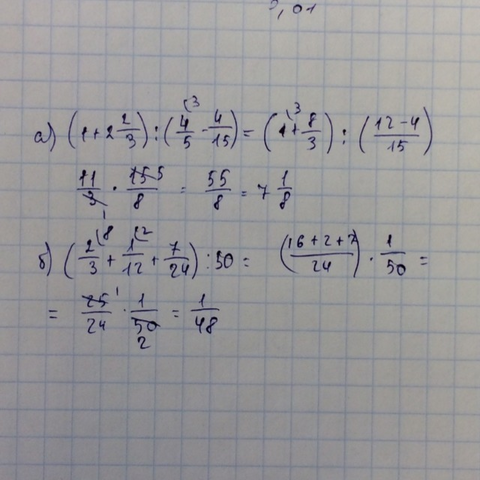 а) (1 + 2 2/3) : (4/5 (3 - 4/15) = (1 (3 + 8/3) : ((12-4)/15)
11/3 1 · 15 5/8 = 55/8 = 7 1/8
б) (2/3 (8 + 1/12 (2 + 7/24) : 50 = ((16+2+7)/24) · 1/50 =
= 25 1/24 · 1/50 2 = 1/48